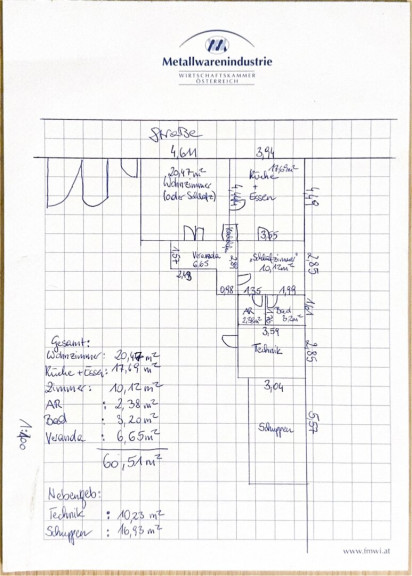 Metallwarenindustrie
WIRTSCHAFTSKAMMER
ÖSTERREICH
Straße
4,611
3,94
20,47m²
Wohnzimmer
(oder Schlafz)
17,69m²
Küche
+
Essen
4,49
4,44
3,55
1,57
Veranda
6.65
2,85
"Schlafzimmer"
10,12m²
2,85
0,98
1,35
1,99
AR
2,38m²
Bad
3,2m²
1,61
3,59
Technik
2,85
3,04
Schuppen
5,57
Gesamt:
Wohnzimmer: 20,47 m²
Küche + Essen: 17,69 m²
Zimmer: 10,12 m²
AR : 2,38 m²
Bad : 3,20 m²
Veranda : 6,65 m²
60,51 m²
1:100
Nebengeb:
Technik : 10,23 m²
Schuppen : 16,93 m²
www.fmwi.at